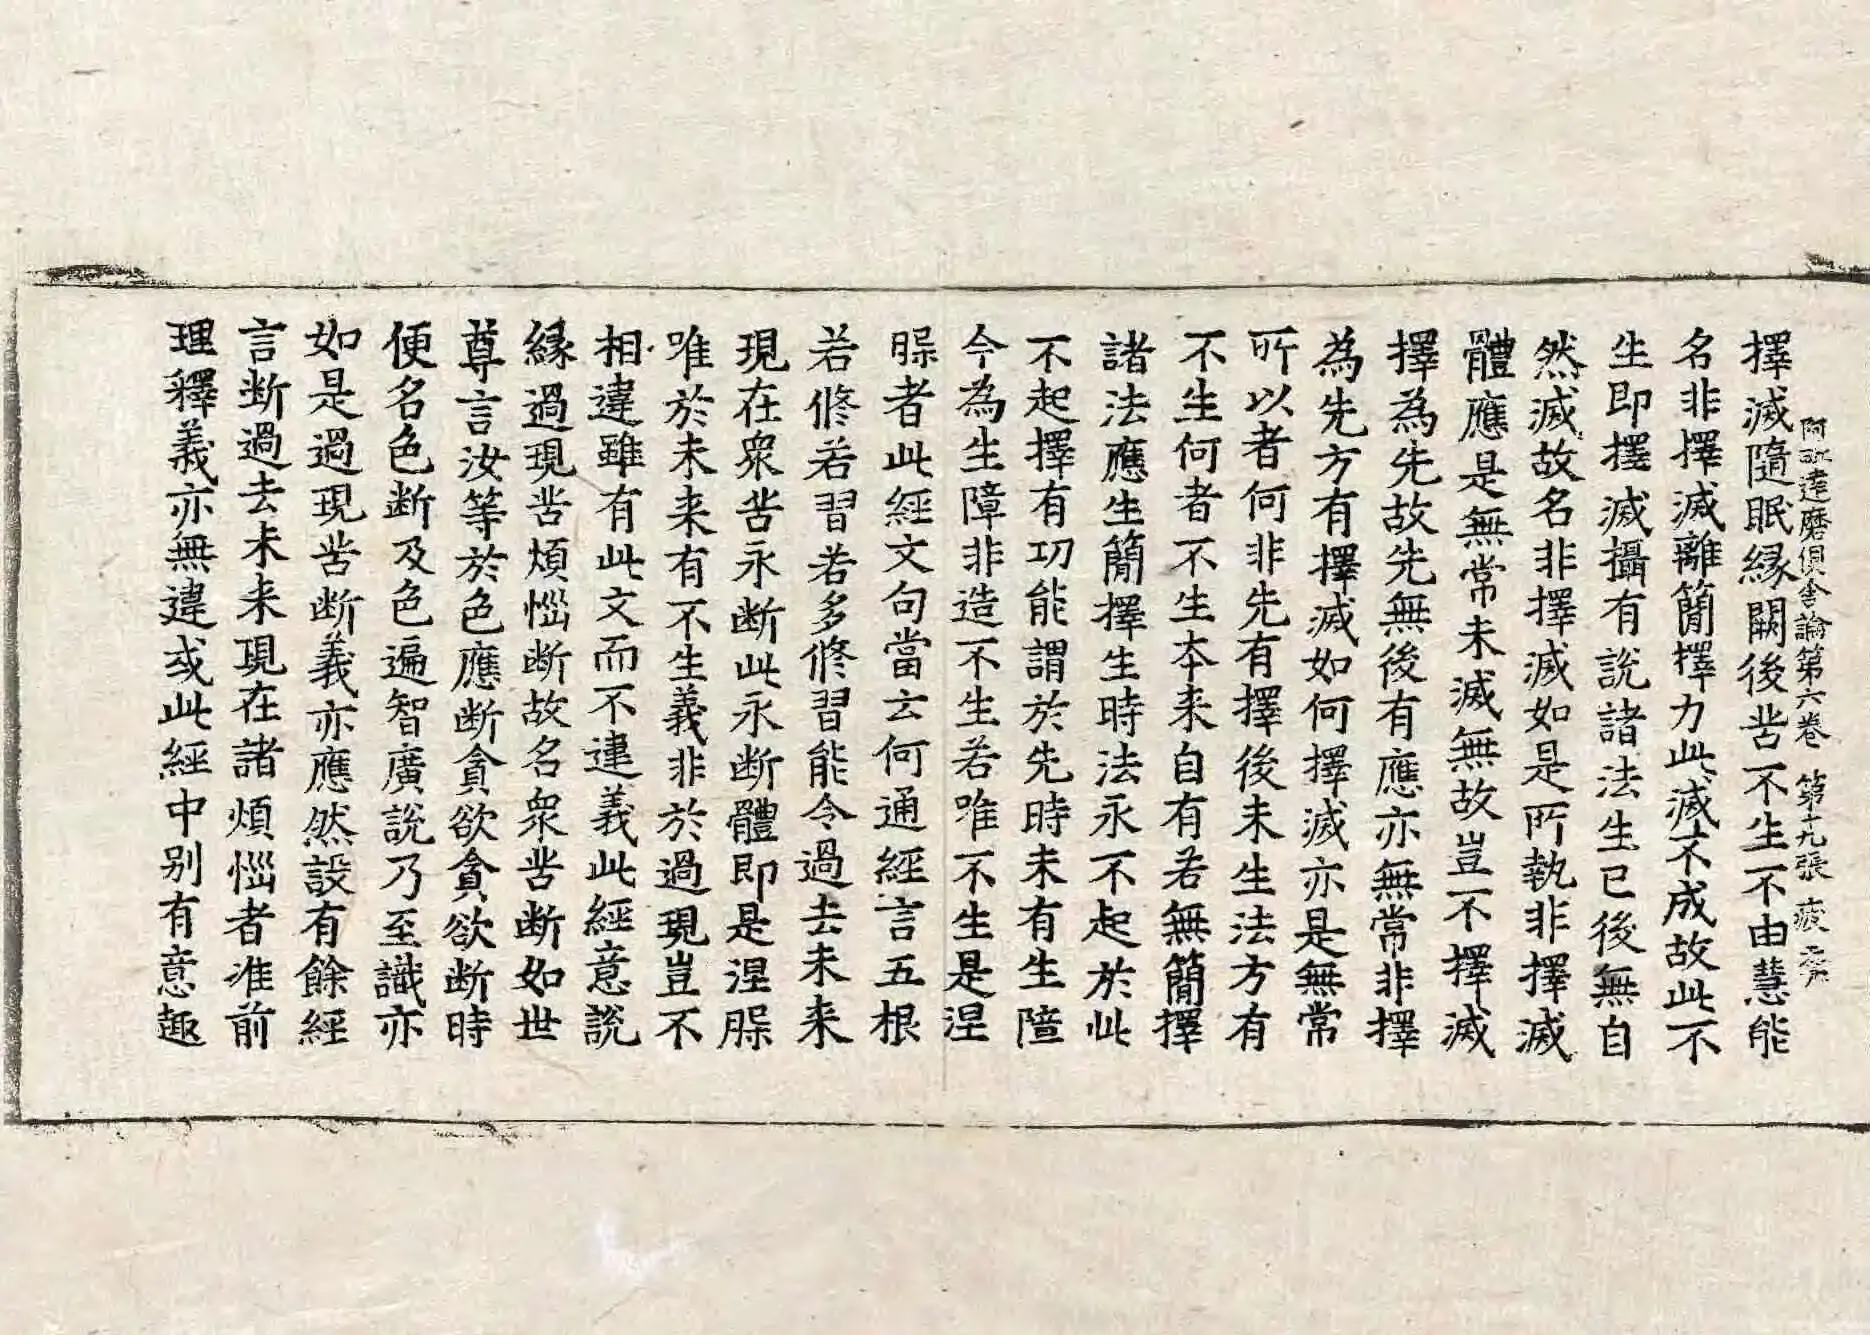 阿毗達磨俱舍論第六卷　第十九張　疲
擇滅隨眠緣闕後苦不生不由慧能
名非擇滅離簡擇力此滅不成故此不
生即擇滅攝有說諸法生已後無自
然滅故名非擇滅如是所執非擇滅
體應是無常未滅無故豈不擇滅
擇為先故先無後有應亦無常非擇
為先方有擇滅如何擇滅亦是無常
所以者何非先有擇後未生法方有
不生何者不生本来自有若無簡擇
諸法應生簡擇生時法永不起於此
不起擇有功能謂於先時未有生障
今為生障非造不生若唯不生是涅
𦝩者此經文句當云何通經言五根
若修若習若多修習能令過去未来
現在眾苦永断此永断體即是涅𦝩
唯於未来有不生義非於過現豈不
相違雖有此文而不違義此經意說
緣過現苦煩惱断故名眾苦断如世
尊言汝等於色應断貪欲貪欲断時
便名色断及色遍智廣說乃至識亦
如是過現苦断義亦應然設有餘經
言断過去未来現在諸煩惱者准前
理釋義亦無違或此經中別有意趣